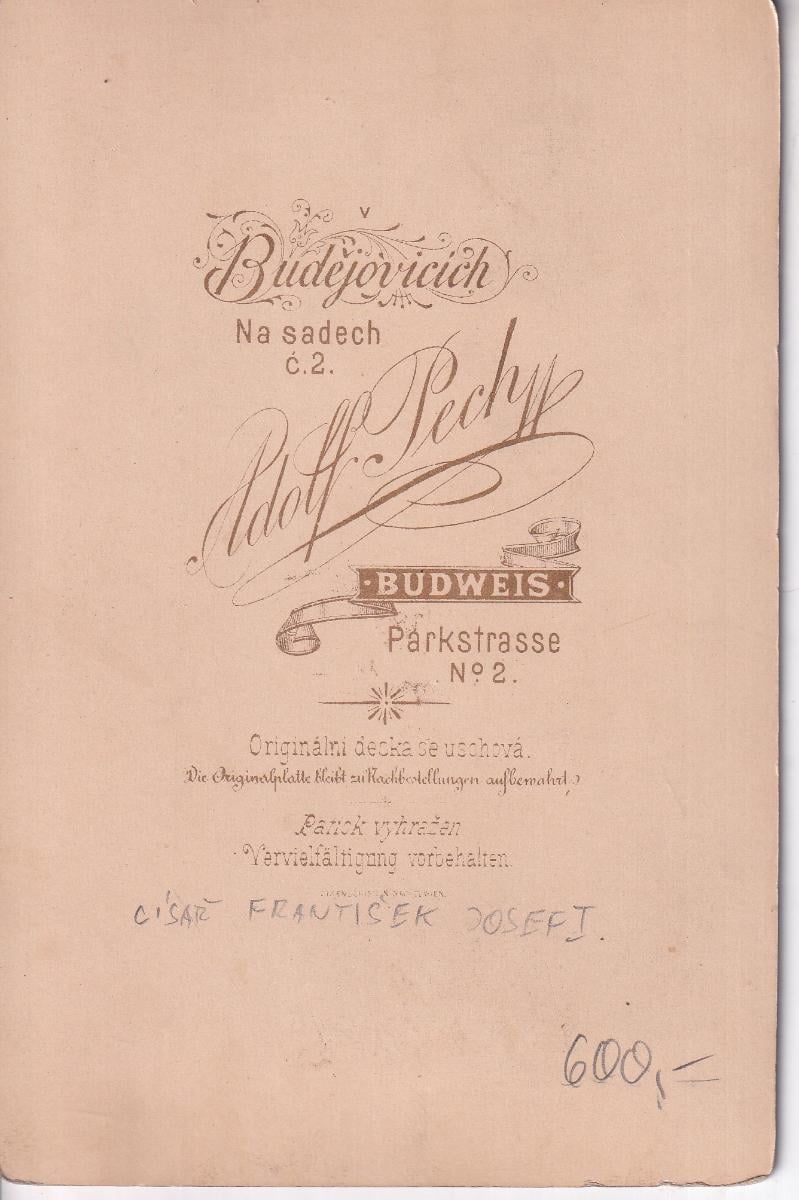 v
Budějovicích
Na sadech
č.2.
Adolf Pech
·BUDWEIS·
Parkstrasse
Nº 2.
Originálni deska se uschová.
Die Originalplatte bleibt zu Nachbestellungen aufbewahrt.
Patisk vyhražen
Vervielfältigung vorbehalten.
CÍSAŘ FRANTIŠEK JOSEF I.
600,-